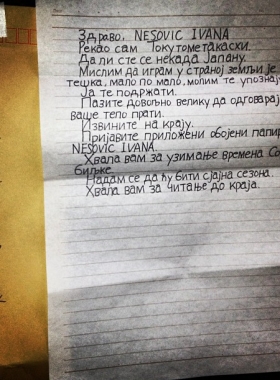 Здраво, NESOVIC IVANA
Рекао сам Токутометакаски.
Да ли сте се некада Јапану.
Мислим да играм у страној земљи је
тешка, мало по мало, молим те упознај
Ја те подржати.
Пазите довољно велику да одговарај
ваше тело прати.
Извините на крају.
Пријавите приложени обојени папир
NESOVIC IVANA.
Хвала вам за узимање времена Со
биљке
Надам се да ћу бити сјајна сезона.
Хвала вам за читање до краја.